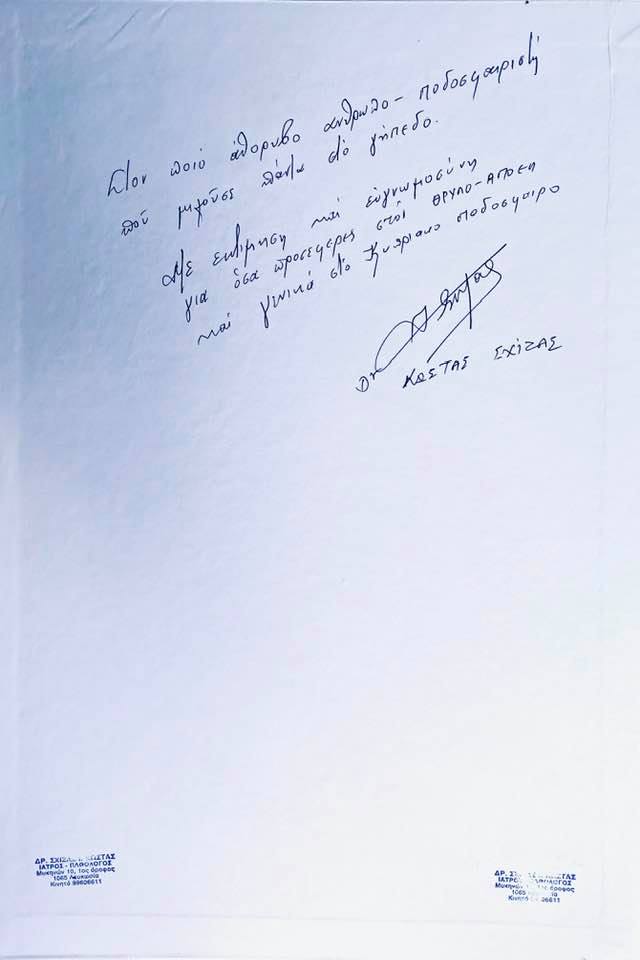 Στον ποιό άθορυβο άνθρωπο - ποδοσφαιριστή
πού μιλούσε πάντα στό γήπεδο.
Με εκτίμηση καί εὐγνωμοσύνη
για όσα προσέφερες στοί ΘΡΥΛΟ - ΑΠΟΕΛ
καί γενικά στό Κυπριακο ποδοσφαιρο
Dr
ΚΩΣΤΑΣ ΣΧΙΖΑΣ
ΔΡ. ΣΧΙΖΑΣ ΚΩΣΤΑΣ
ΙΑΤΡΟΣ - ΠΑΘΟΛΟΓΟΣ
Μυκηνών 10, 1ος όροφος
1065 Λευκωσία
Κινητό 99606611
ΔΡ. ΣΧΙΖΑΣ ΚΩΣΤΑΣ
ΙΑΤΡΟΣ - ΠΑΘΟΛΟΓΟΣ
Μυκηνών 10, 1ος όροφος
1065 Λευκωσία
Κινητό